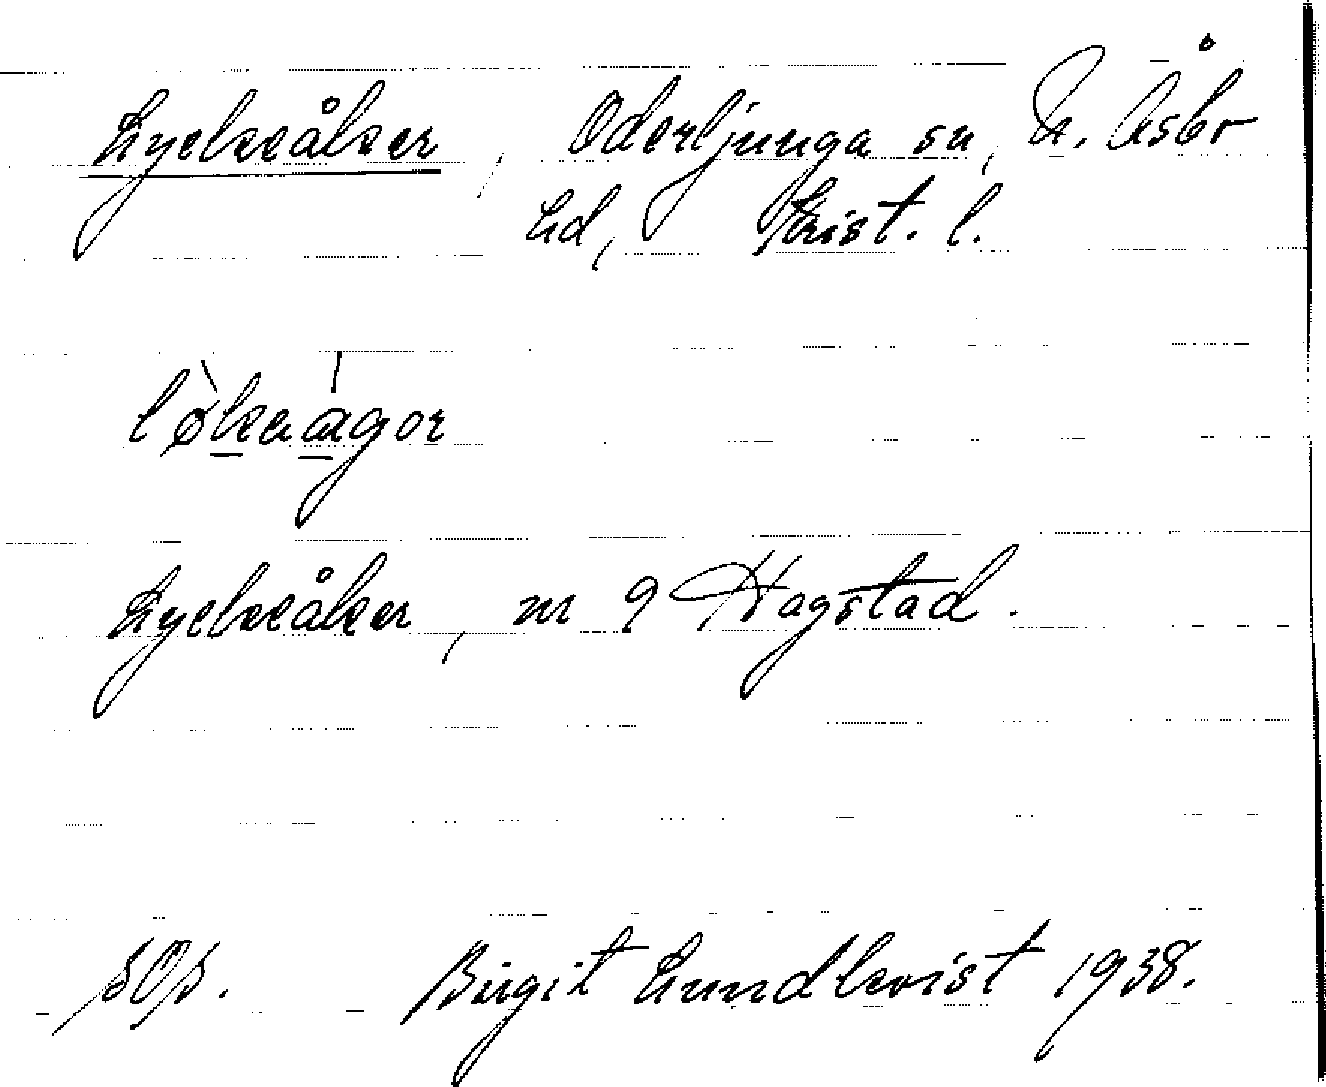 Lyckeåker, Oderljunga sn, N. Åsbo
hd, Krist. l.
lø̀kaágor
Lyckeåker, nr 9 Hagstad.
sOp. Birgit Lundkvist 1938.